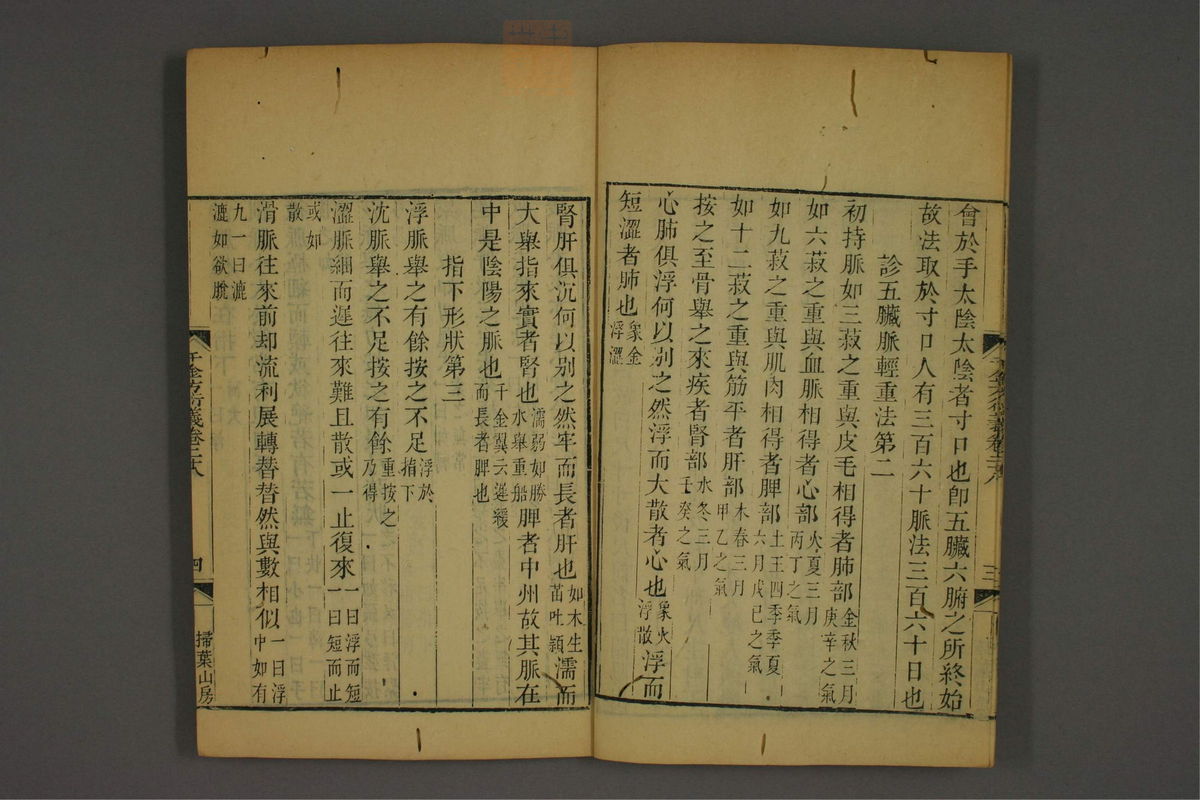 會於手太陰太陰者寸口也卽五臟六腑之所終始
故法取於寸口人有三百六十脈法三百六十日也
診五臟脈輕重法第二
初持脈如三菽之重與皮毛相得者肺部金秋三月庚辛之氣
如六菽之重與血脈相得者心部火夏三月丙丁之氣
如九菽之重與肌肉相得者脾部土王四季季夏六月戊巳之氣
如十二菽之重與筋平者肝部木春三月甲乙之氣
按之至骨舉之來疾者腎部水冬三月壬癸之氣
心肺俱浮何以別之然浮而大散者心也象火浮散浮而
短澀者肺也象金浮澀
三
腎肝俱沉何以別之然牢而長者肝也如木生苗吐穎濡而
大舉指來實者腎也濡弱如勝水舉重船脾者中州故其脈在
中是陰陽之脈也千金翼云遲緩而長者脾也
指下形狀第三
浮脈舉之有餘按之不足浮於指下
沈脈舉之不足按之有餘重按之乃得
澀脈細而遲往來難且散或一止復來一曰浮而短一曰短而止
或如散
滑脈往來前却流利展轉替替然與數相似一曰浮中如有
九一曰漉漉如欲脫
千金方衍義卷二十八
四
掃葉山房